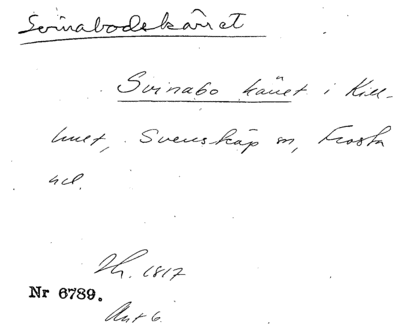 Svinabodskäret
Svinabo käret i Kill-
hult, Svensköp sn, Frosta
hd.
Jh. 1817
Nr 6789.
Akt 6.